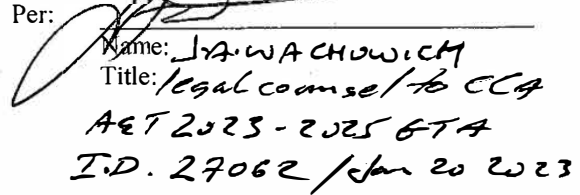 Per:
Name: J.A. WACHOWICH
Title: legal counsel to CCA
AET 2023-2025 GTA
I.D. 27062 / Jan 20 2023